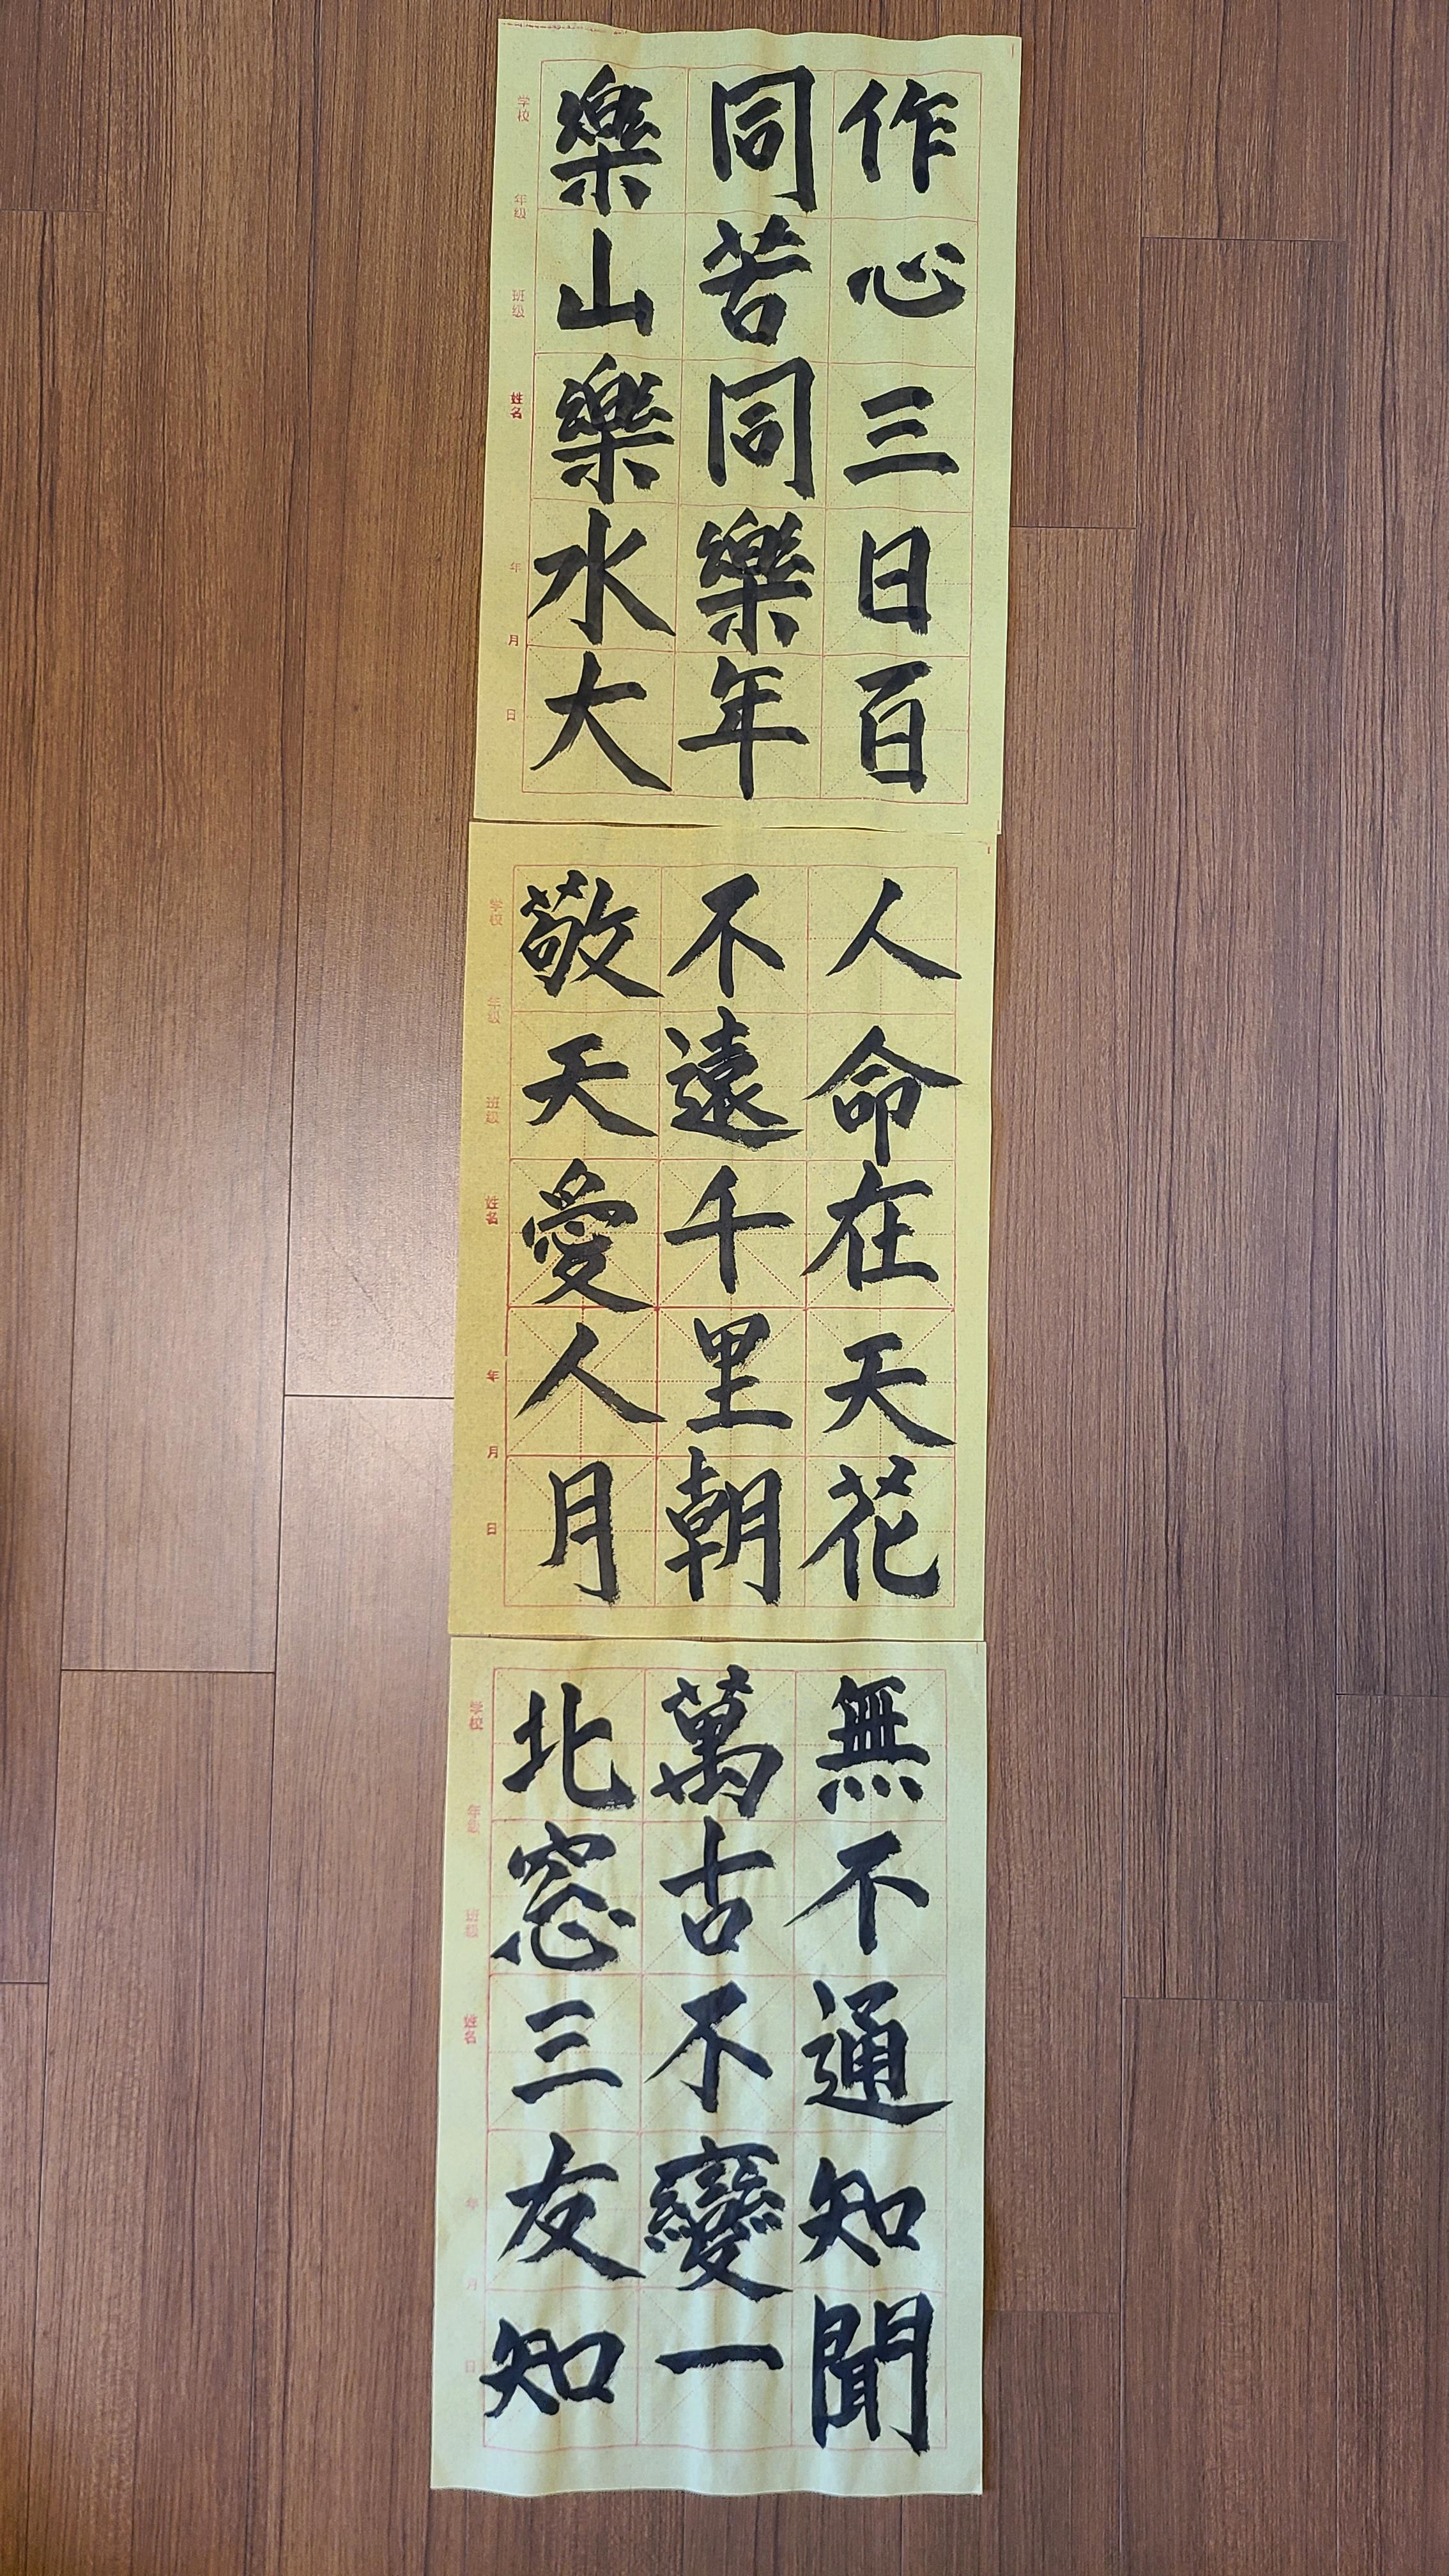 作心三日百
同苦同樂年
樂山樂水大
学校 年级 班级 姓名 年 月 日
人命在天花
不遠千里朝
敬天愛人月
学校 年级 班级 姓名 年 月 日
無不通知聞
萬古不變一
北窓三友知
学校 年级 班级 姓名 年 月 日